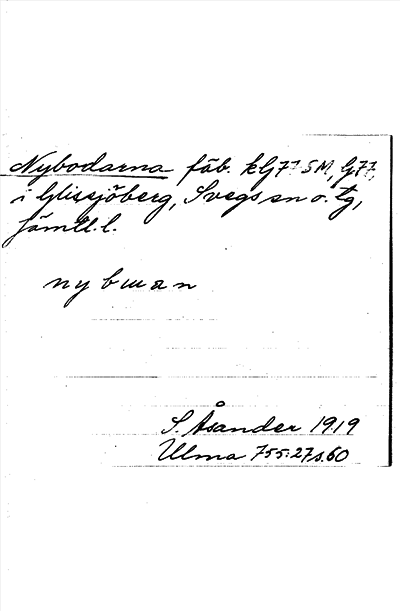 Nybodarna fäb. kG77SM, G77,
i Glissjöberg, Svegs sn o. tg,
Jämtl. l.
nybwan
S. Åsander 1919
Ulma 755:27 s. 60